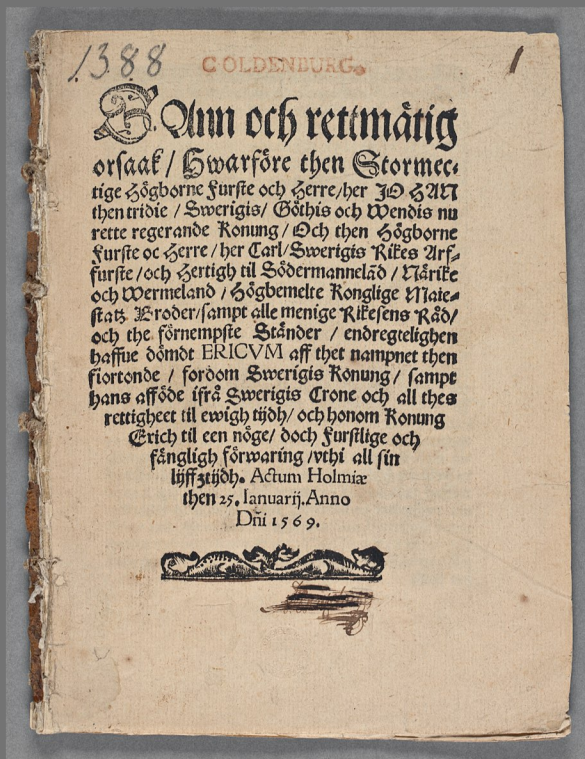 1388
COLDENBURG.
1
SAnn och rettmätig
orsaak / Hwarföre then Stormec⸗
tige Högborne Furste och Herre/her JOHAN
then tridie / Swerigis/ Göthis och Wendis nu
rette regerande Konung / Och then Högborne
Furste oc Herre / her Carl/Swerigis Rikes Arf⸗
furste /och Hertigh til Södermannelād / Närike
och Wermeland / Högbemelte Konglige Maie⸗
statz Broder/sampt alle menige Rikesens Råd/
och the förnempste Ständer / endregtelighen
haffue dömdt ERICVM aff thet nampnet then
fiortonde / fordom Swerigis Konung / sampt
hans afföde ifrå Swerigis Crone och all thes
rettigheet til ewigh tijdh/ och honom Konung
Erich til een nöge/ doch Furstlige och
fängligh förwaring /vthi all sin
lijffztijdh. Actum Holmiæ
then 25. Ianuarij. Anno
Dñi 1569.